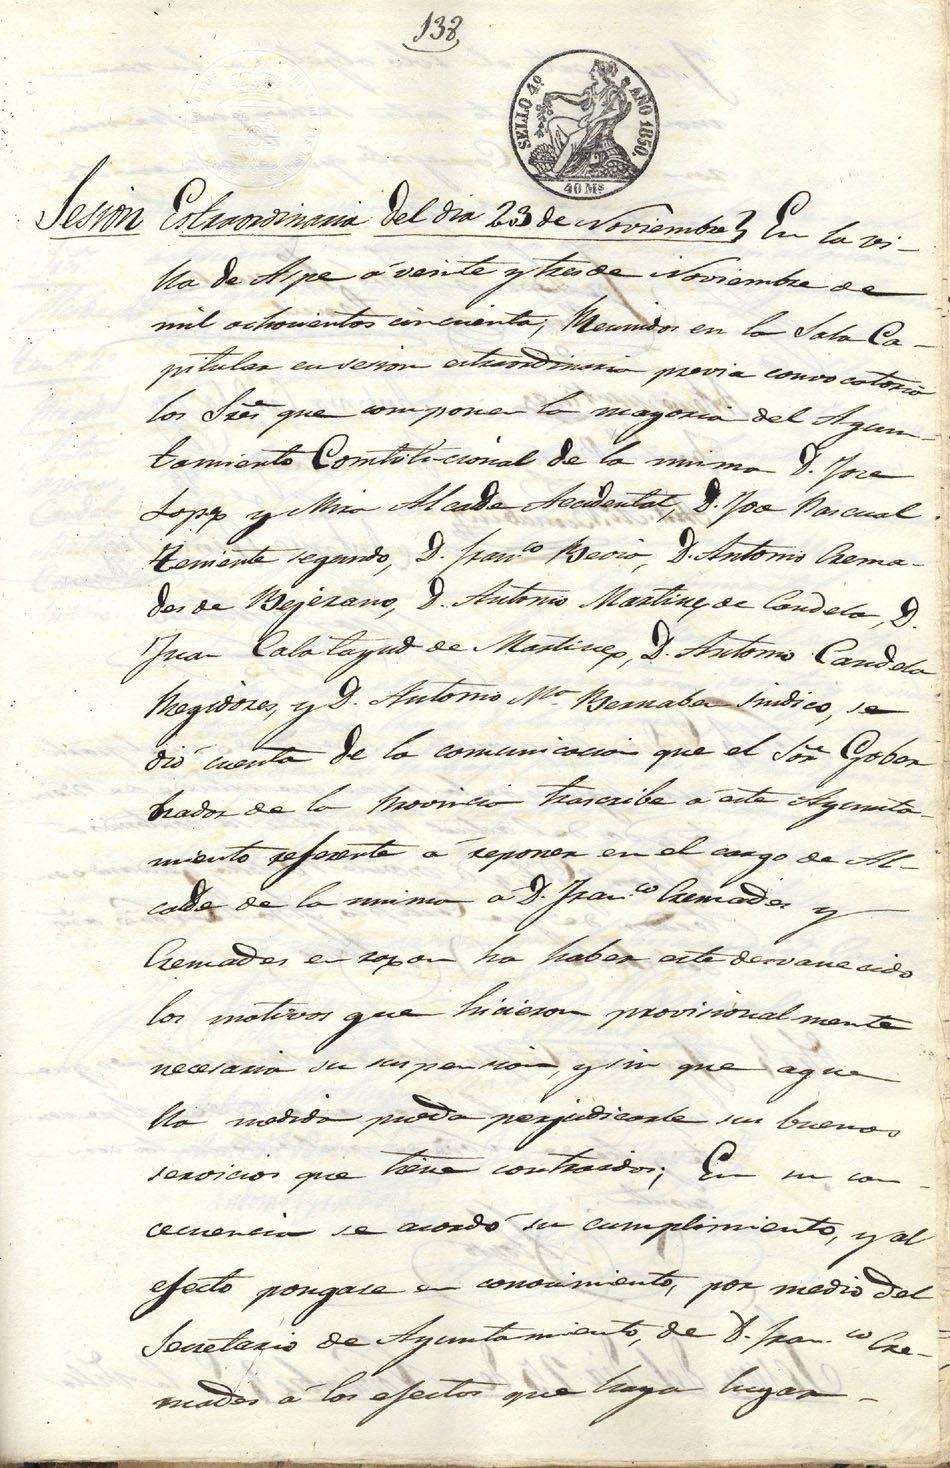 138
SELLO 4º AÑO 1850.
40 Ms
Sesion Extraordinaria del dia 23 de Noviembre} En la vi-
lla de Aspe á veinte y tres de Noviembre de
mil ochocientos cincuenta; Reunidos en la Sala Ca-
pitular en sesion extraordinaria previa convocatoria
los Sres que componen la mayoria del Ayun-
tamiento Constitucional de la misma D. Jose
Lopez y Mira Alcalde Accidental, D. Jose Pascual
Teniente segundo, D. Franco Bevia, D. Antonio Crema-
des de Bejerano, D. Antonio Martinez de Candela, D.
Juan Calatayud de Martinez, D. Antonio Candela
Regidores, y D. Antonio Ma Bernabeu Sindico, se
dió cuenta de la comunicacion que el Sor Gober
nador de la Provincia trascribe á este Ayunta-
miento referente á reponer en el cargo de Al-
calde de la misma á D. Franco Cremades y
Cremades en razon ha haber este desvanecido
los motivos que hicieron provisionalmente
necesaria su suspension, y sin que aque
lla medida pueda perjudicarle sus buenos
servicios que tiene contraidos; En su con-
cecuencia se acordó su cumplimiento, y al
efecto pongase en conocimiento, por medio del
Secretario de Ayuntamiento, de D. Fran.co Cre-
mades á los efectos que haya lugar -